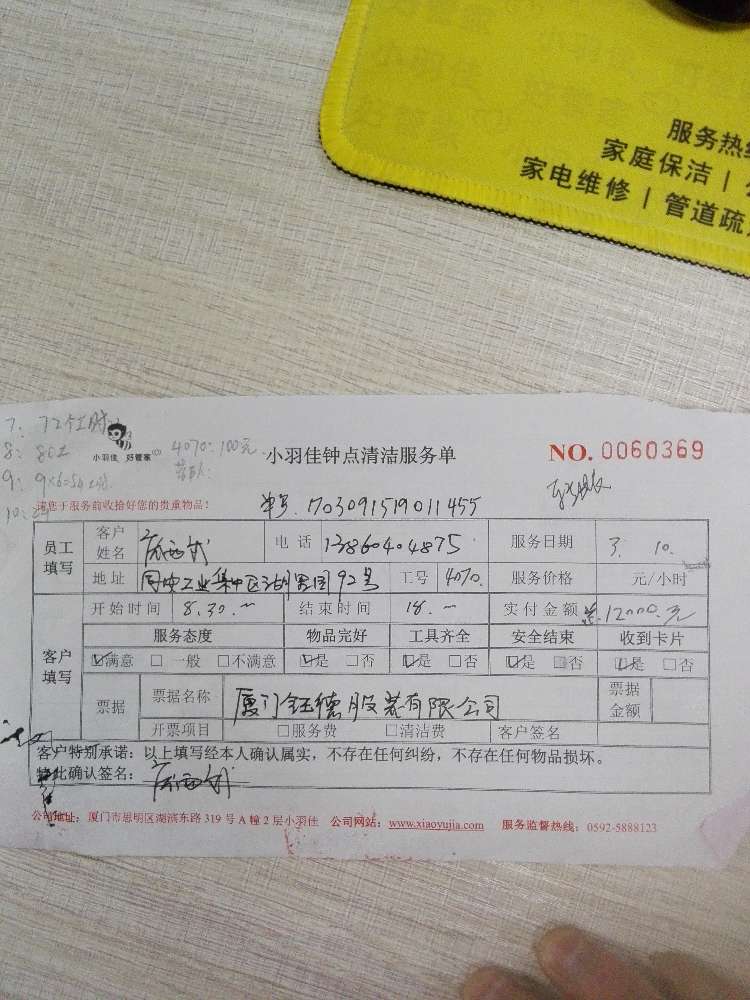 小羽佳
服务热
家庭保洁 |
家电维修 | 管道疏
7: 72个小时
8: 80
9: 9×6=54
10:
小羽佳 好管家
4070: 100元
小羽佳钟点清洁服务单
NO. 0060369
请您于服务前收拾好您的贵重物品！
单号. 170309151901 1455
员工填写 客户姓名 电话 13860404875 服务日期 3. 10.
地址 同安工业集中区湖里园92号 工号 4070. 服务价格 元/小时
客户填写 开始时间 8.30.~ 结束时间 18.~ 实付金额 12000.元
服务态度 物品完好 工具齐全 安全结束 收到卡片
☑满意 □一般 □不满意 ☑是 □否 ☑是 □否 ☑是 □否 ☑是 □否
票据 票据名称 厦门钰德服装有限公司 票据金额
开票项目 □服务费 □清洁费 客户签名
客户特别承诺：以上填写经本人确认属实，不存在任何纠纷，不存在任何物品损坏。
特此确认签名：
公司地址：厦门市思明区湖滨东路 319 号 A 幢 2 层小羽佳 公司网站：www.xiaoyujia.com 服务监督热线：0592-5888123